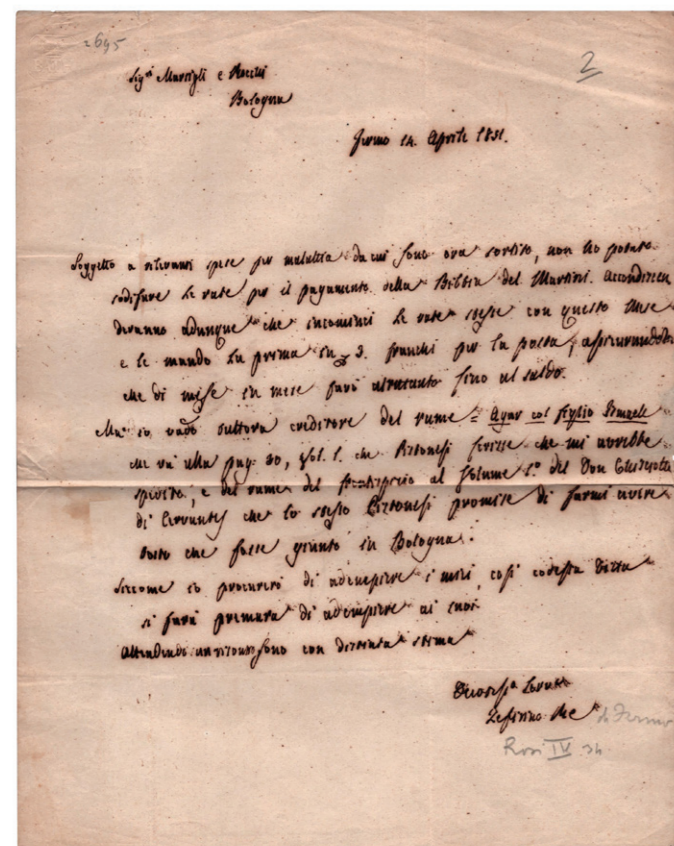 2695
2
Sig.ri Marsigli e Rocchi
Bologna
Fermo 14. Aprile 1831.
Soggetto a rilevanti spese per malattia da cui sono ora sortito, non ho potuto
sodisfare le rate per il pagamento della Bibbia del Martini. Accondiscen
deranno adunque che incominci le rate stesse con questo Mese
e le mando la prima in 3. franchi per la posta, assicurandole
che di mese in mese farò altrettanto fino al saldo.
Ma io vado tuttora creditore del rame = Agar col figlio Ismaele
che va alla pag. 30, Vol. 1. che scrisse che mi avrebbe
spedito, e del rame del frontespizio al Volume 1.o del Don Chisciotte
di Cervantes che lo stesso promise di farmi avere
tosto che fosse giunto in Bologna.
Siccome io procurerò di adempiere i miei, così codesta Ditta
si farà premura di adempiere ai suoi.
Attendendo un riscontro sono con distinta stima
Zefirino Re di Fermo
Rosi IV. 34